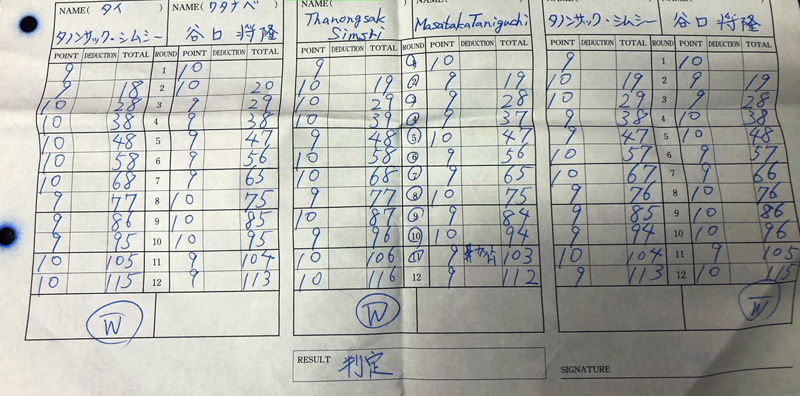 NAME( タイ ) NAME( ワタナベ ) NAME( ) NAME( ) NAME( ) NAME( )
タノンサック・シムシー 谷口 将隆 Thanongsak Simshi Masataka Taniguchi タノンサック・シムシー 谷口 将隆
POINT DEDUCTION TOTAL ROUND POINT DEDUCTION TOTAL POINT DEDUCTION TOTAL ROUND POINT DEDUCTION TOTAL POINT DEDUCTION TOTAL ROUND POINT DEDUCTION TOTAL
9 1 10 9 1 10 9 1 10
9 18 2 10 20 10 19 2 9 19 10 19 2 9 19
10 28 3 9 29 10 29 3 9 28 10 29 3 9 28
10 38 4 9 38 10 39 4 9 37 9 38 4 10 38
10 48 5 9 47 9 48 5 10 47 9 47 5 10 48
10 58 6 9 56 10 58 6 9 56 10 57 6 9 57
10 68 7 9 65 10 68 7 9 65 10 67 7 9 66
9 77 8 10 75 9 77 8 10 75 9 76 8 10 76
9 86 9 10 85 10 87 9 9 84 9 85 9 10 86
9 95 10 10 95 9 96 10 10 94 9 94 10 10 96
10 105 11 9 104 10 106 11 9 103 10 104 11 9 105
10 115 12 9 113 10 116 12 9 112 9 113 12 10 115
W W W
RESULT 判定 SIGNATURE